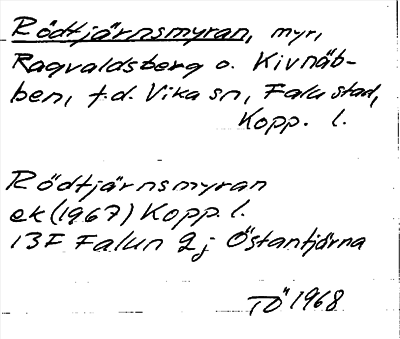 Rödtjärnsmyran, myr,
Ragvaldsberg o. Kivnäb-
ben, f.d. Vika sn, Falu stad,
Kopp. l.
Rödtjärnsmyran
ek (1967) Kopp. l.
13F Falun 2j Östantjärna
TÖ 1968